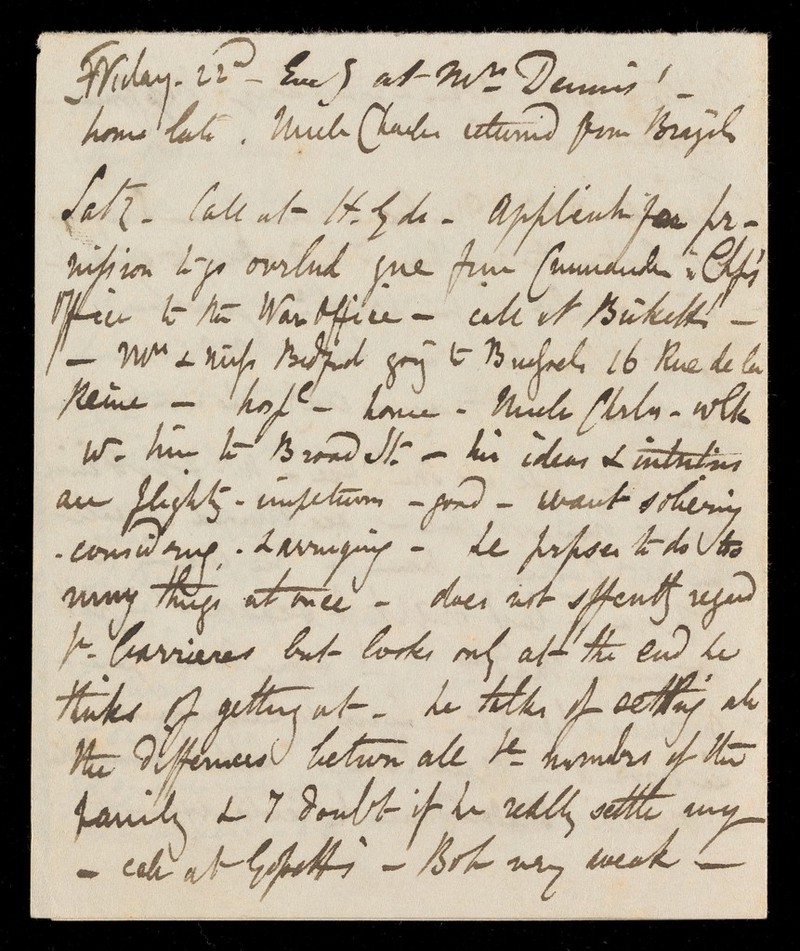 Friday - 22d - Eveg at Mrs Dennis' -
home late. Uncle Charles returned from Brazils
Saty - Call at H. Gds - Applicatn for per-
mission to go overld gone from Commander in Chfs
Office to the War Office - call at Birketts' -
- Mrs & Miss Bedford going to Brussels 16 Rue de la
Reine - hospl - home - Uncle Chrles - wlk
w. him to Broad St. - his ideas &
are flighty - impetuous - good - want sobering
- considering - & arranging - he prposes to do too
many things at once - does not sffcently regard
ye barrieres but looks only at the end he
thinks of getting at - he talks of settling all
the differences between all ye membrs of the
family & I doubt if he really settle any
- call at - Bob very weak -